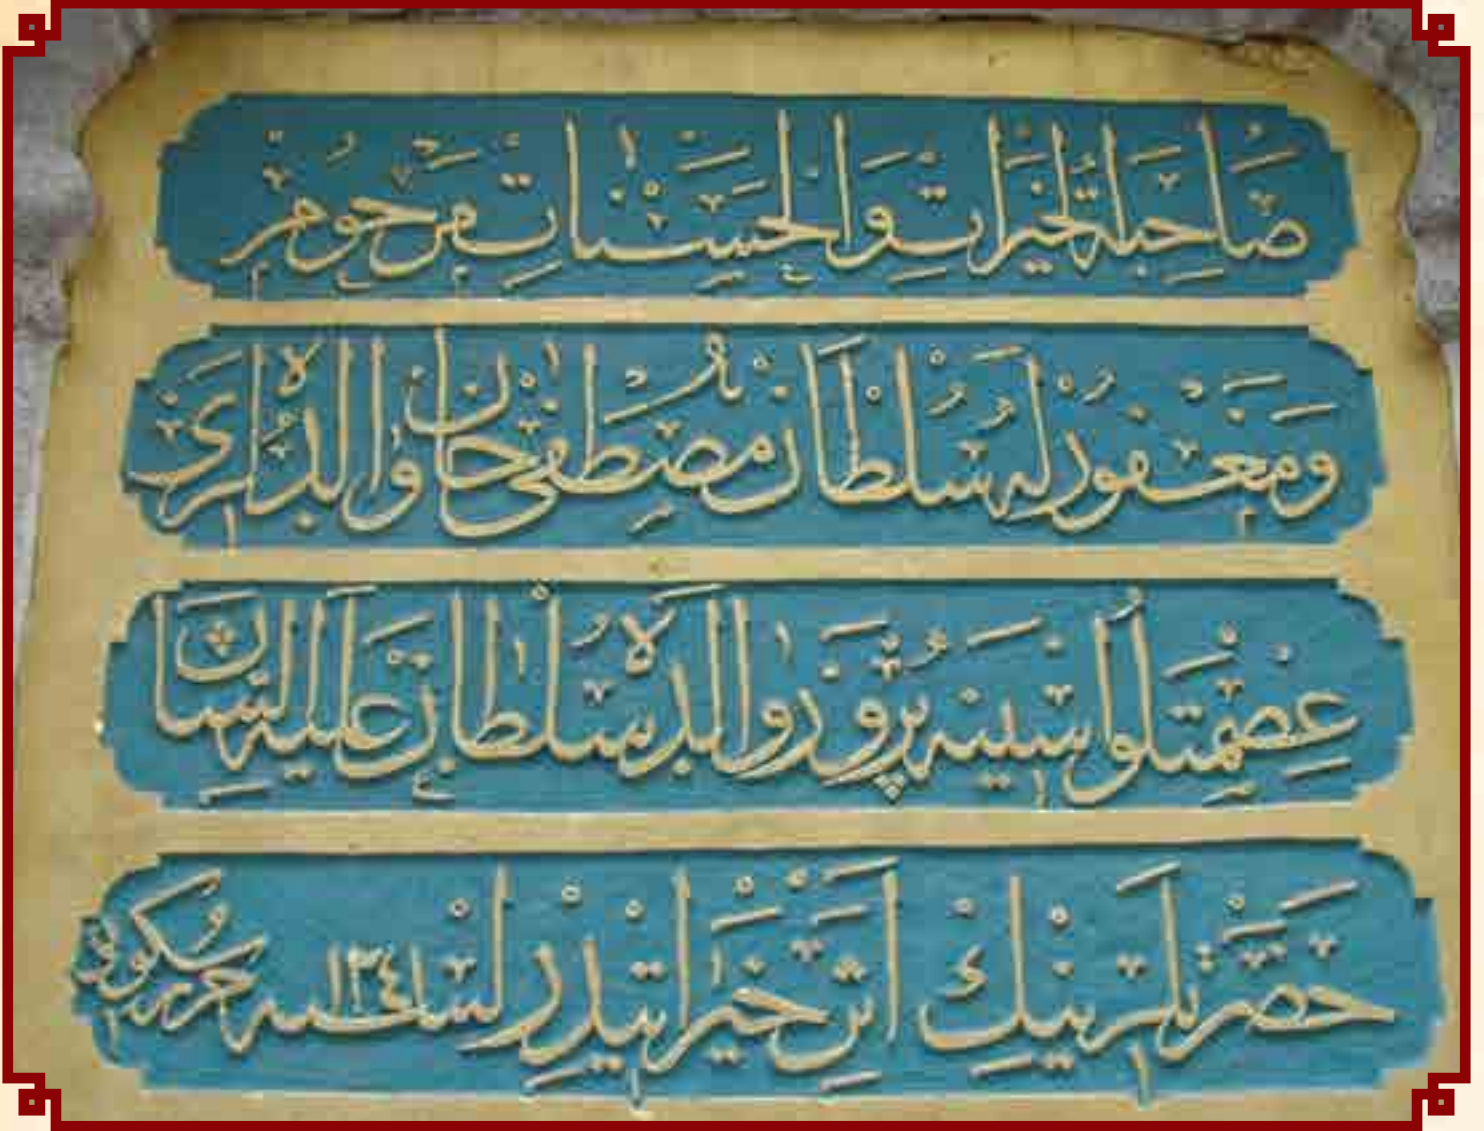 صاحبة الخيرات والحسنات مرحوم
ومغفور له سلطان مصطفى خان والده لرى
عصمتلو اسينه پرور والده سلطان علية الشان
حضرتلرينيك اثر خيراتيدر لسنه ١٢٤١